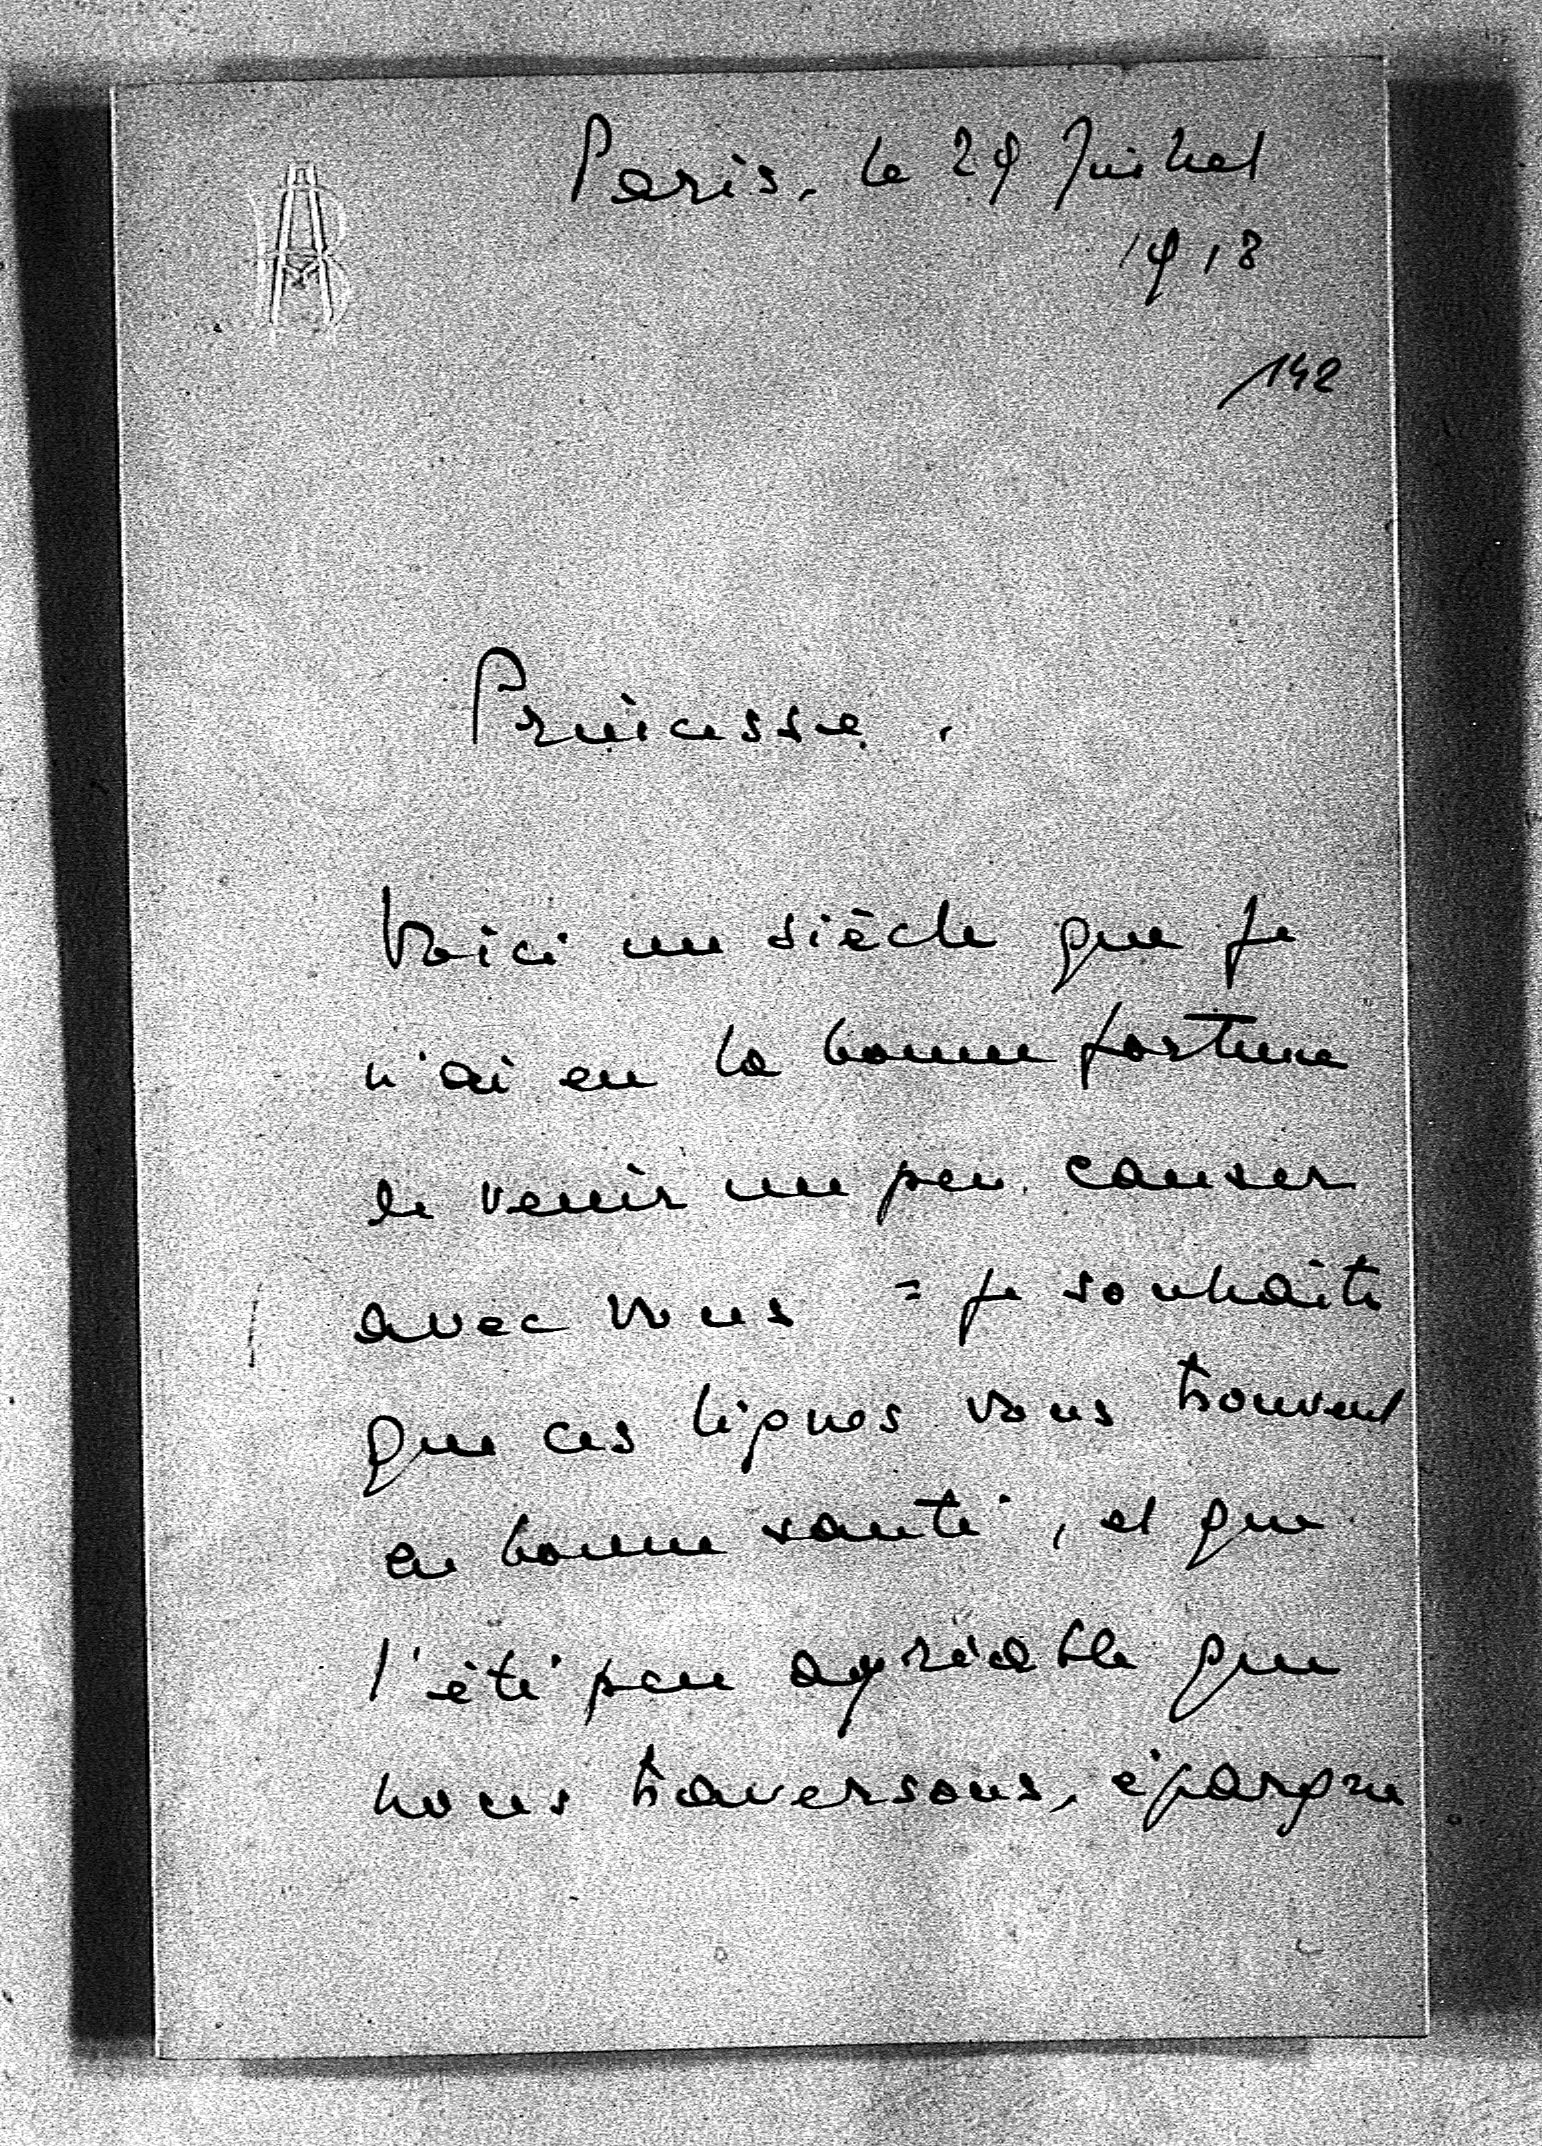 Paris, le 29 Juillet
1918
142
Princesse,
Voici un siècle que je
n'ai eu la bonne fortune
de venir un peu causer
avec vous = je souhaite
que ces lignes vous trouvent
en bonne santé, et que
l'été peu agréable que
nous traversons, épargne